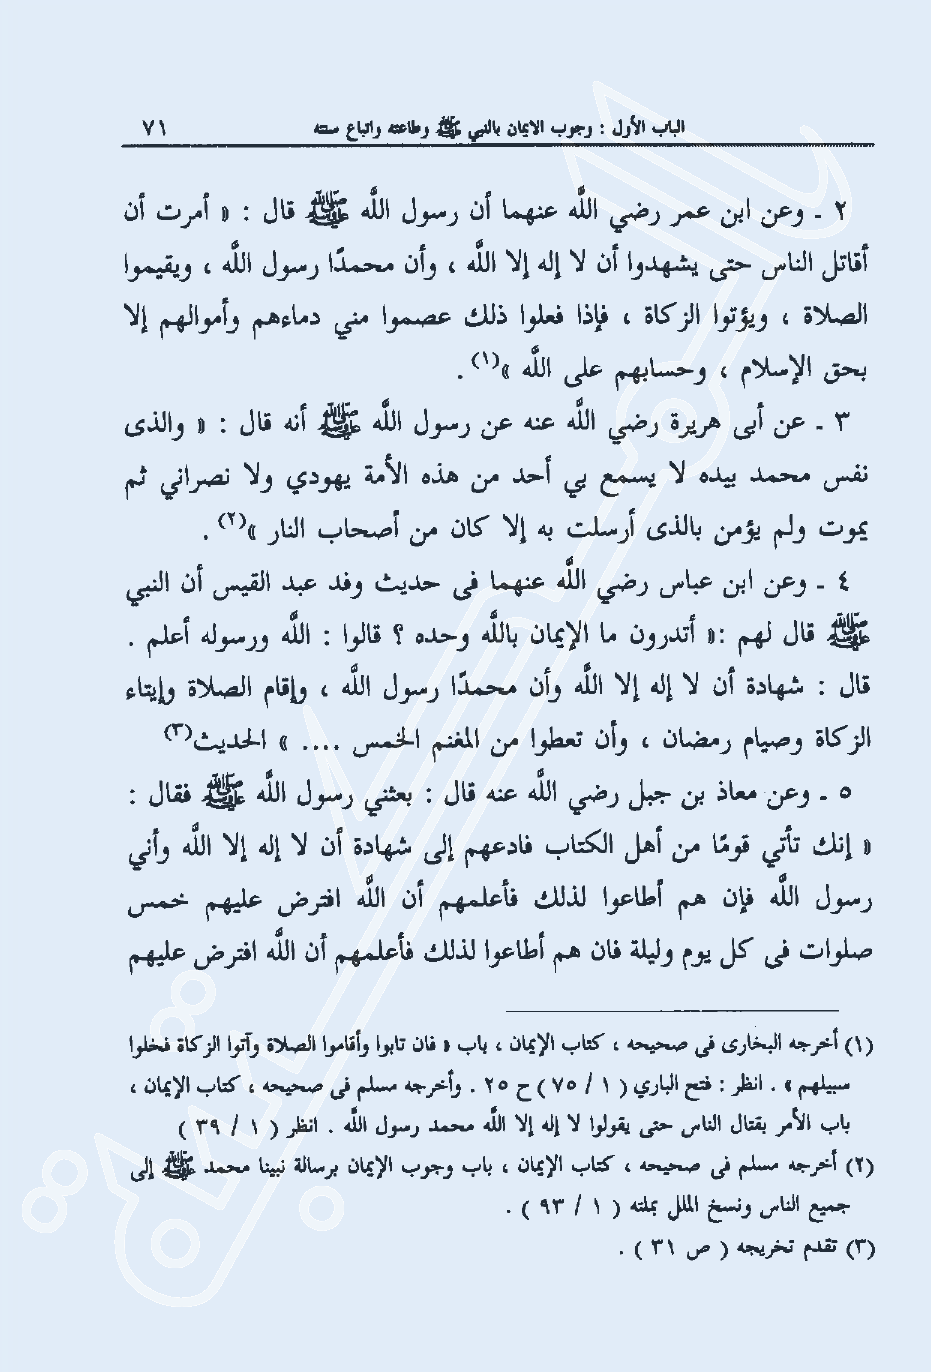 الباب الأول : وجوب الايمان بالنبي ﷺ وطاعته واتباع سنته ٧١
٢ ـ وعن ابن عمر رضي اللَّه عنهما أن رسول اللَّه ﷺ قال : « أمرت أن
أقاتل الناس حتى يشهدوا أن لا إله إلا اللَّه ، وأن محمدًا رسول اللَّه ، ويقيموا
الصلاة ، ويؤتوا الزكاة ، فإذا فعلوا ذلك عصموا مني دماءهم وأموالهم إلا
بحق الإسلام ، وحسابهم على اللَّه »(١) .
٣ ـ عن أبى هريرة رضي اللَّه عنه عن رسول اللَّه ﷺ أنه قال : « والذى
نفس محمد بيده لا يسمع بي أحد من هذه الأمة يهودي ولا نصراني ثم
يموت ولم يؤمن بالذى أرسلت به إلا كان من أصحاب النار »(٢) .
٤ ـ وعن ابن عباس رضي اللَّه عنهما فى حديث وفد عبد القيس أن النبي
ﷺ قال لهم :« أتدرون ما الإيمان باللَّه وحده ؟ قالوا : اللَّه ورسوله أعلم .
قال : شهادة أن لا إله إلا اللَّه وأن محمدًا رسول اللَّه ، وإقام الصلاة وإيتاء
الزكاة وصيام رمضان ، وأن تعطوا من المغنم الخمس .... » الحديث(٣)
٥ ـ وعن معاذ بن جبل رضي اللَّه عنه قال : بعثني رسول اللَّه ﷺ فقال :
« إنك تأتي قومًا من أهل الكتاب فادعهم إلى شهادة أن لا إله إلا اللَّه وأني
رسول اللَّه فإن هم أطاعوا لذلك فأعلمهم أن اللَّه افترض عليهم خمس
صلوات فى كل يوم وليلة فان هم أطاعوا لذلك فأعلمهم أن اللَّه افترض عليهم
(١) أخرجه البخارى فى صحيحه ، كتاب الإيمان ، باب « فان تابوا وأقاموا الصلاة وآتوا الزكاة فخلوا
سبيلهم » . انظر : فتح الباري ( ١ / ٧٥ ) ح ٢٥ . وأخرجه مسلم فى صحيحه ، كتاب الإيمان ،
باب الأمر بقتال الناس حتى يقولوا لا إله إلا اللَّه محمد رسول اللَّه . انظر ( ١ / ٣٩ )
(٢) أخرجه مسلم فى صحيحه ، كتاب الإيمان ، باب وجوب الإيمان برسالة نبينا محمد ﷺ إلى
جميع الناس ونسخ الملل بملته ( ١ / ٩٣ ) .
(٣) تقدم تخريجه ( ص ٣١ ) .